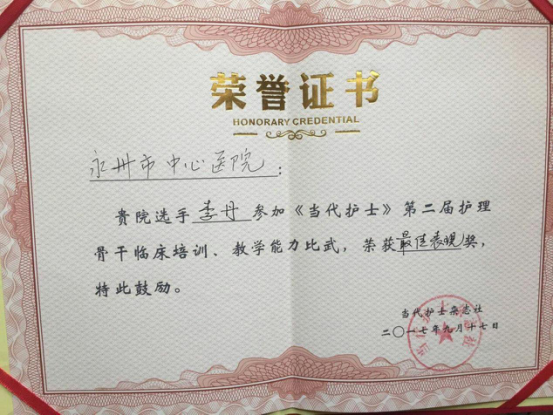 荣誉证书
HONORARY CREDENTIAL
永州市中心医院：
贵院选手李丹参加《当代护士》第二届护理
骨干临床培训、教学能力比武，荣获最佳表现奖，
特此鼓励。
当代护士杂志社
二〇一七年九月十七日